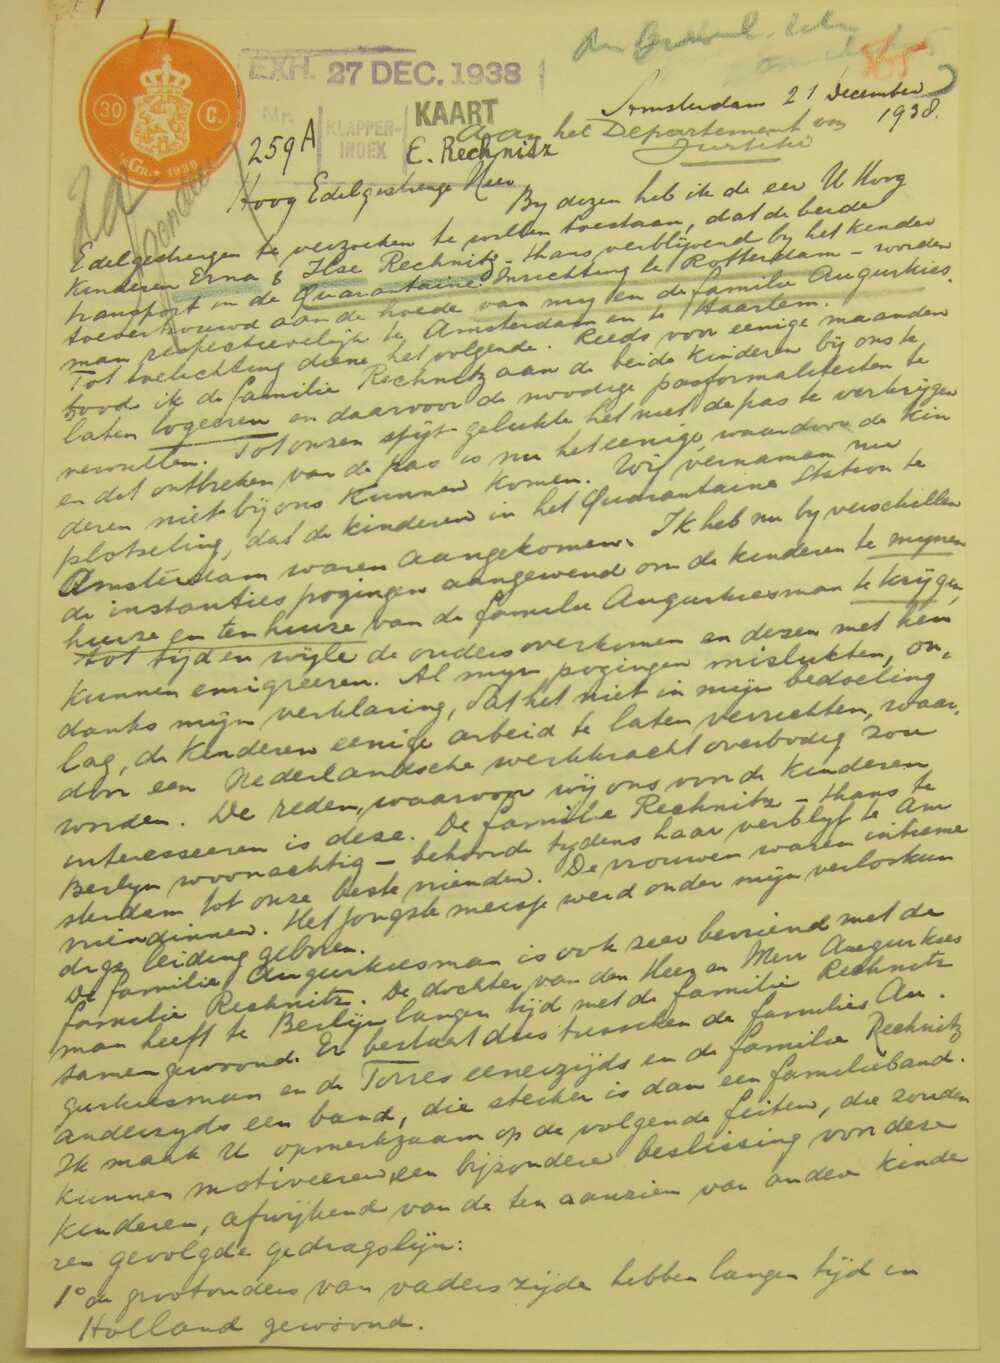 30 C.
'sGr. + 1938
EXH. 27 DEC. 1938
Nr. 259A
KLAPPER-
INDEX
KAART
E. Rechnitz
Amsterdam 21 December
1938.
Aan het Departement van
Justitie
Hoog Edelgestrenge Heer
By dezen heb ik de eer U Hoog
Edelgestrengen te verzoeken te willen toestaan, dat de beide
kinderen Erna & Ilse Rechnitz - thans verblijvend by het kinder
transport in de Quarantaine Inrichting te Rotterdam - worden
toevertrouwd aan de hoede van my en de familie Augurkies.
man respectievelijk te Amsterdam en te Haarlem.
Tot toelichting diene het volgende. Reeds voor eenige maanden
bood ik de familie Rechnitz aan de beide kinderen bij ons te
laten logeeren en daarvoor de noodige pasformaliteiten te
vervullen. Tot onzen spijt gelukte het niet de pas te verkrijgen
en dit ontbreken van de pas is nu het eenige, waardoor de kin
deren niet bij ons kunnen komen. Wij vernamen nu
plotseling, dat de kinderen in het Quarantaine Station te
Amsterdam waren aangekomen. Ik heb nu by verschillen
de instanties pogingen aangewend om de kinderen te mynen
huize en ten huize van de familie Augurkiesman te krijgen,
tot tijd en wijle de ouders overkomen en dezen met hen
kunnen emigreeren. Al mijn pogingen mislukten, on.
danks mijn verklaring, dat het niet in mijn bedoeling
lag, de kinderen eenige arbeid te laten verrichten, waar.
door een Nederlandsche werkkracht overbodig zou
worden. De reden, waarvoor wij ons voor de kinderen
interesseeren is deze. De familie Rechnitz - thans te
Berlyn woonachtig - behoorde tydens haar verblyf te Am
sterdam tot onze beste vrienden. De vrouwen waren intieme
vriendinnen. Het jongste meisje werd onder mijn verloskun
dige leiding geboren.
De familie Augurkiesman is ook zeer bevriend met de
familie Rechnitz. De dochter van den Heer en Mevr Augurkies
man heeft te Berlijn langen tijd met de familie Rechnitz
samengewoond. Er bestaat dus tusschen de families Au.
gurkiesman en de Torres eenerzijds en de familie Rechnitz
anderzyds een band, die sterker is dan een familieband.
Ik maak U opmerkzaam op de volgende feiten, die zouden
kunnen motiveeren een bijzondere beslissing voor deze
kinderen, afwijkend van de ten aanzien van andere kinde
ren gevolgde gedragslijn:
1° de grootouders van vaderszijde hebben langen tijd in
Holland gewoond.